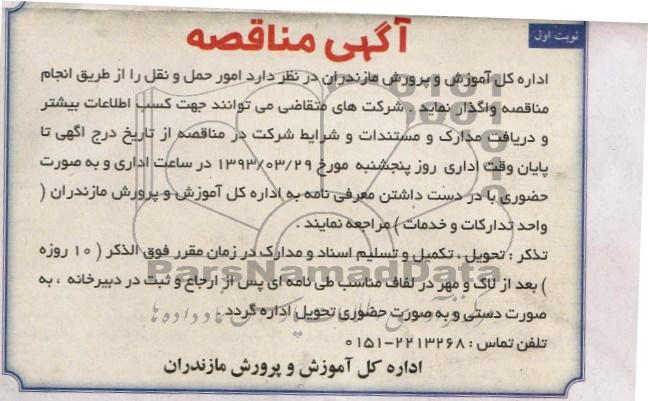 نوبت اول
آگهی مناقصه
اداره کل آموزش و پرورش مازندران در نظر دارد امور حمل و نقل را از طریق انجام
مناقصه واگذار نماید . شرکت های متقاضی می توانند جهت کسب اطلاعات بیشتر
و دریافت مدارک و مستندات و شرایط شرکت در مناقصه از تاریخ درج آگهی تا
پایان وقت اداری روز پنجشنبه مورخ ۱۳۹۳/۰۳/۲۹ در ساعت اداری و به صورت
حضوری با در دست داشتن معرفی نامه به اداره کل آموزش و پرورش مازندران (
واحد تدارکات و خدمات ) مراجعه نمایند .
تذکر : تحویل ، تکمیل و تسلیم اسناد و مدارک در زمان مقرر فوق الذکر ( ۱۰ روزه
) بعد از لاک و مهر در لفاف مناسب طی نامه ای پس از ارجاع و ثبت در دبیرخانه ، به
صورت دستی و به صورت حضوری تحویل اداره گردد .
تلفن تماس : ۲۲۱۳۲۶۸-۰۱۵۱
اداره کل آموزش و پرورش مازندران
ParsNamadData